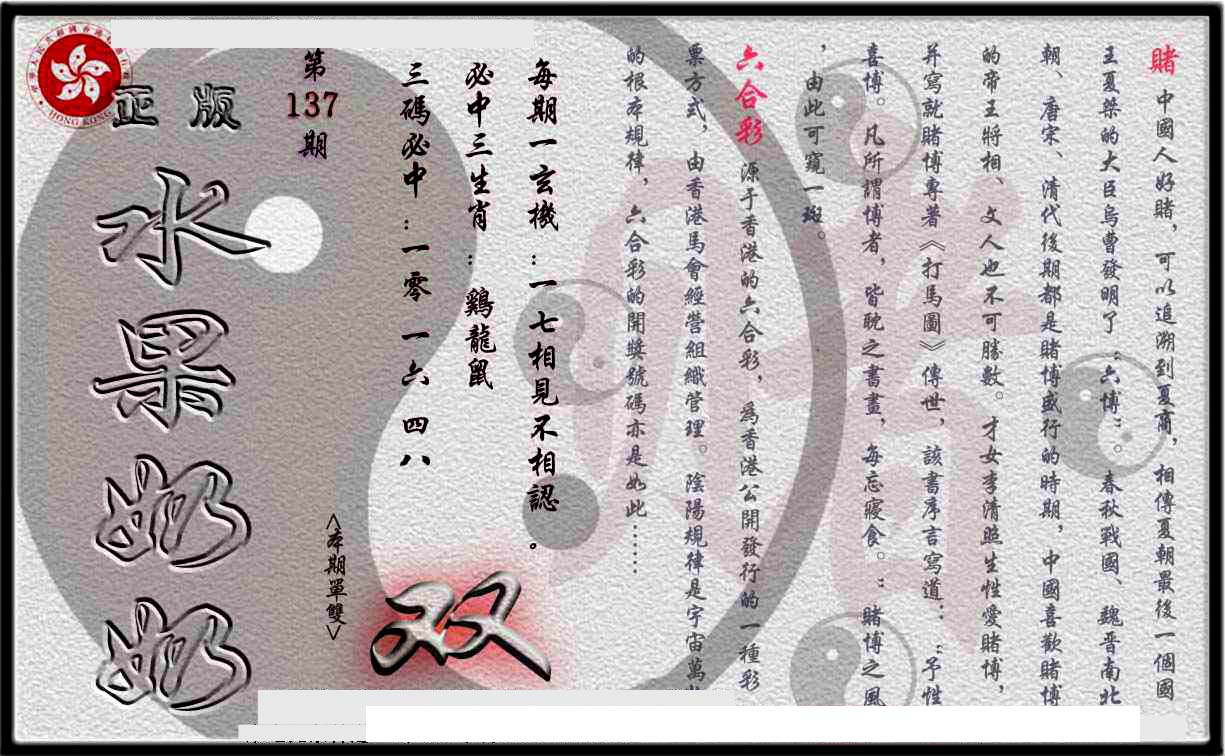 賭 中國人好賭，可以追溯到夏商，相傳夏朝最後一個國
王夏桀的大臣烏曹發明了“六博”。春秋戰國、魏晋南北
朝、唐宋、清代後期都是賭博盛行的時期，中國喜歡賭博
的帝王將相、文人也不可勝數。才女李清照生性愛賭博，
并寫就賭博專著《打馬圖》傳世，該書序言寫道：“予性
喜博。凡所謂博者，皆耽之書畫，每忘寢食。”賭博之風
，由此可窺一斑。
六合彩 源于香港的六合彩，為香港公開發行的一種彩
票方式，由香港馬會經營組織管理。陰陽規律是宇宙萬
的根本規律，六合彩的開獎號碼亦是如此……
每期一玄機：一七相見不相認。
必中三生肖：鷄龍鼠
三碼必中：一零 一六 四八
<本期單雙>
双
第
137
期
正版
水果奶奶
HONG KONG